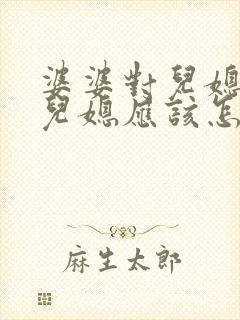 婆婆對兒媳
兒媳應該怎
麻生太郎